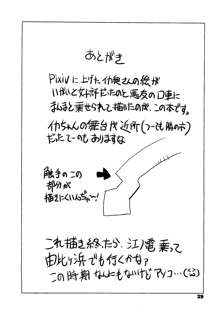 あとがき
Pixivに上げたイカ娘さんの絵が
いがいと好評だったのと悪友の口車に
まんまと乗せられて描いたのが、この本です。
イカちゃんの舞台が近所(つっても隣の市)
だったてーのもありますな
触手のこの
部分が
描きにくいんじゃ〜!
これ描き終たら、江ノ電乗って
由比ヶ浜でも行くかな?
この時期なんにもないけどアソコ…